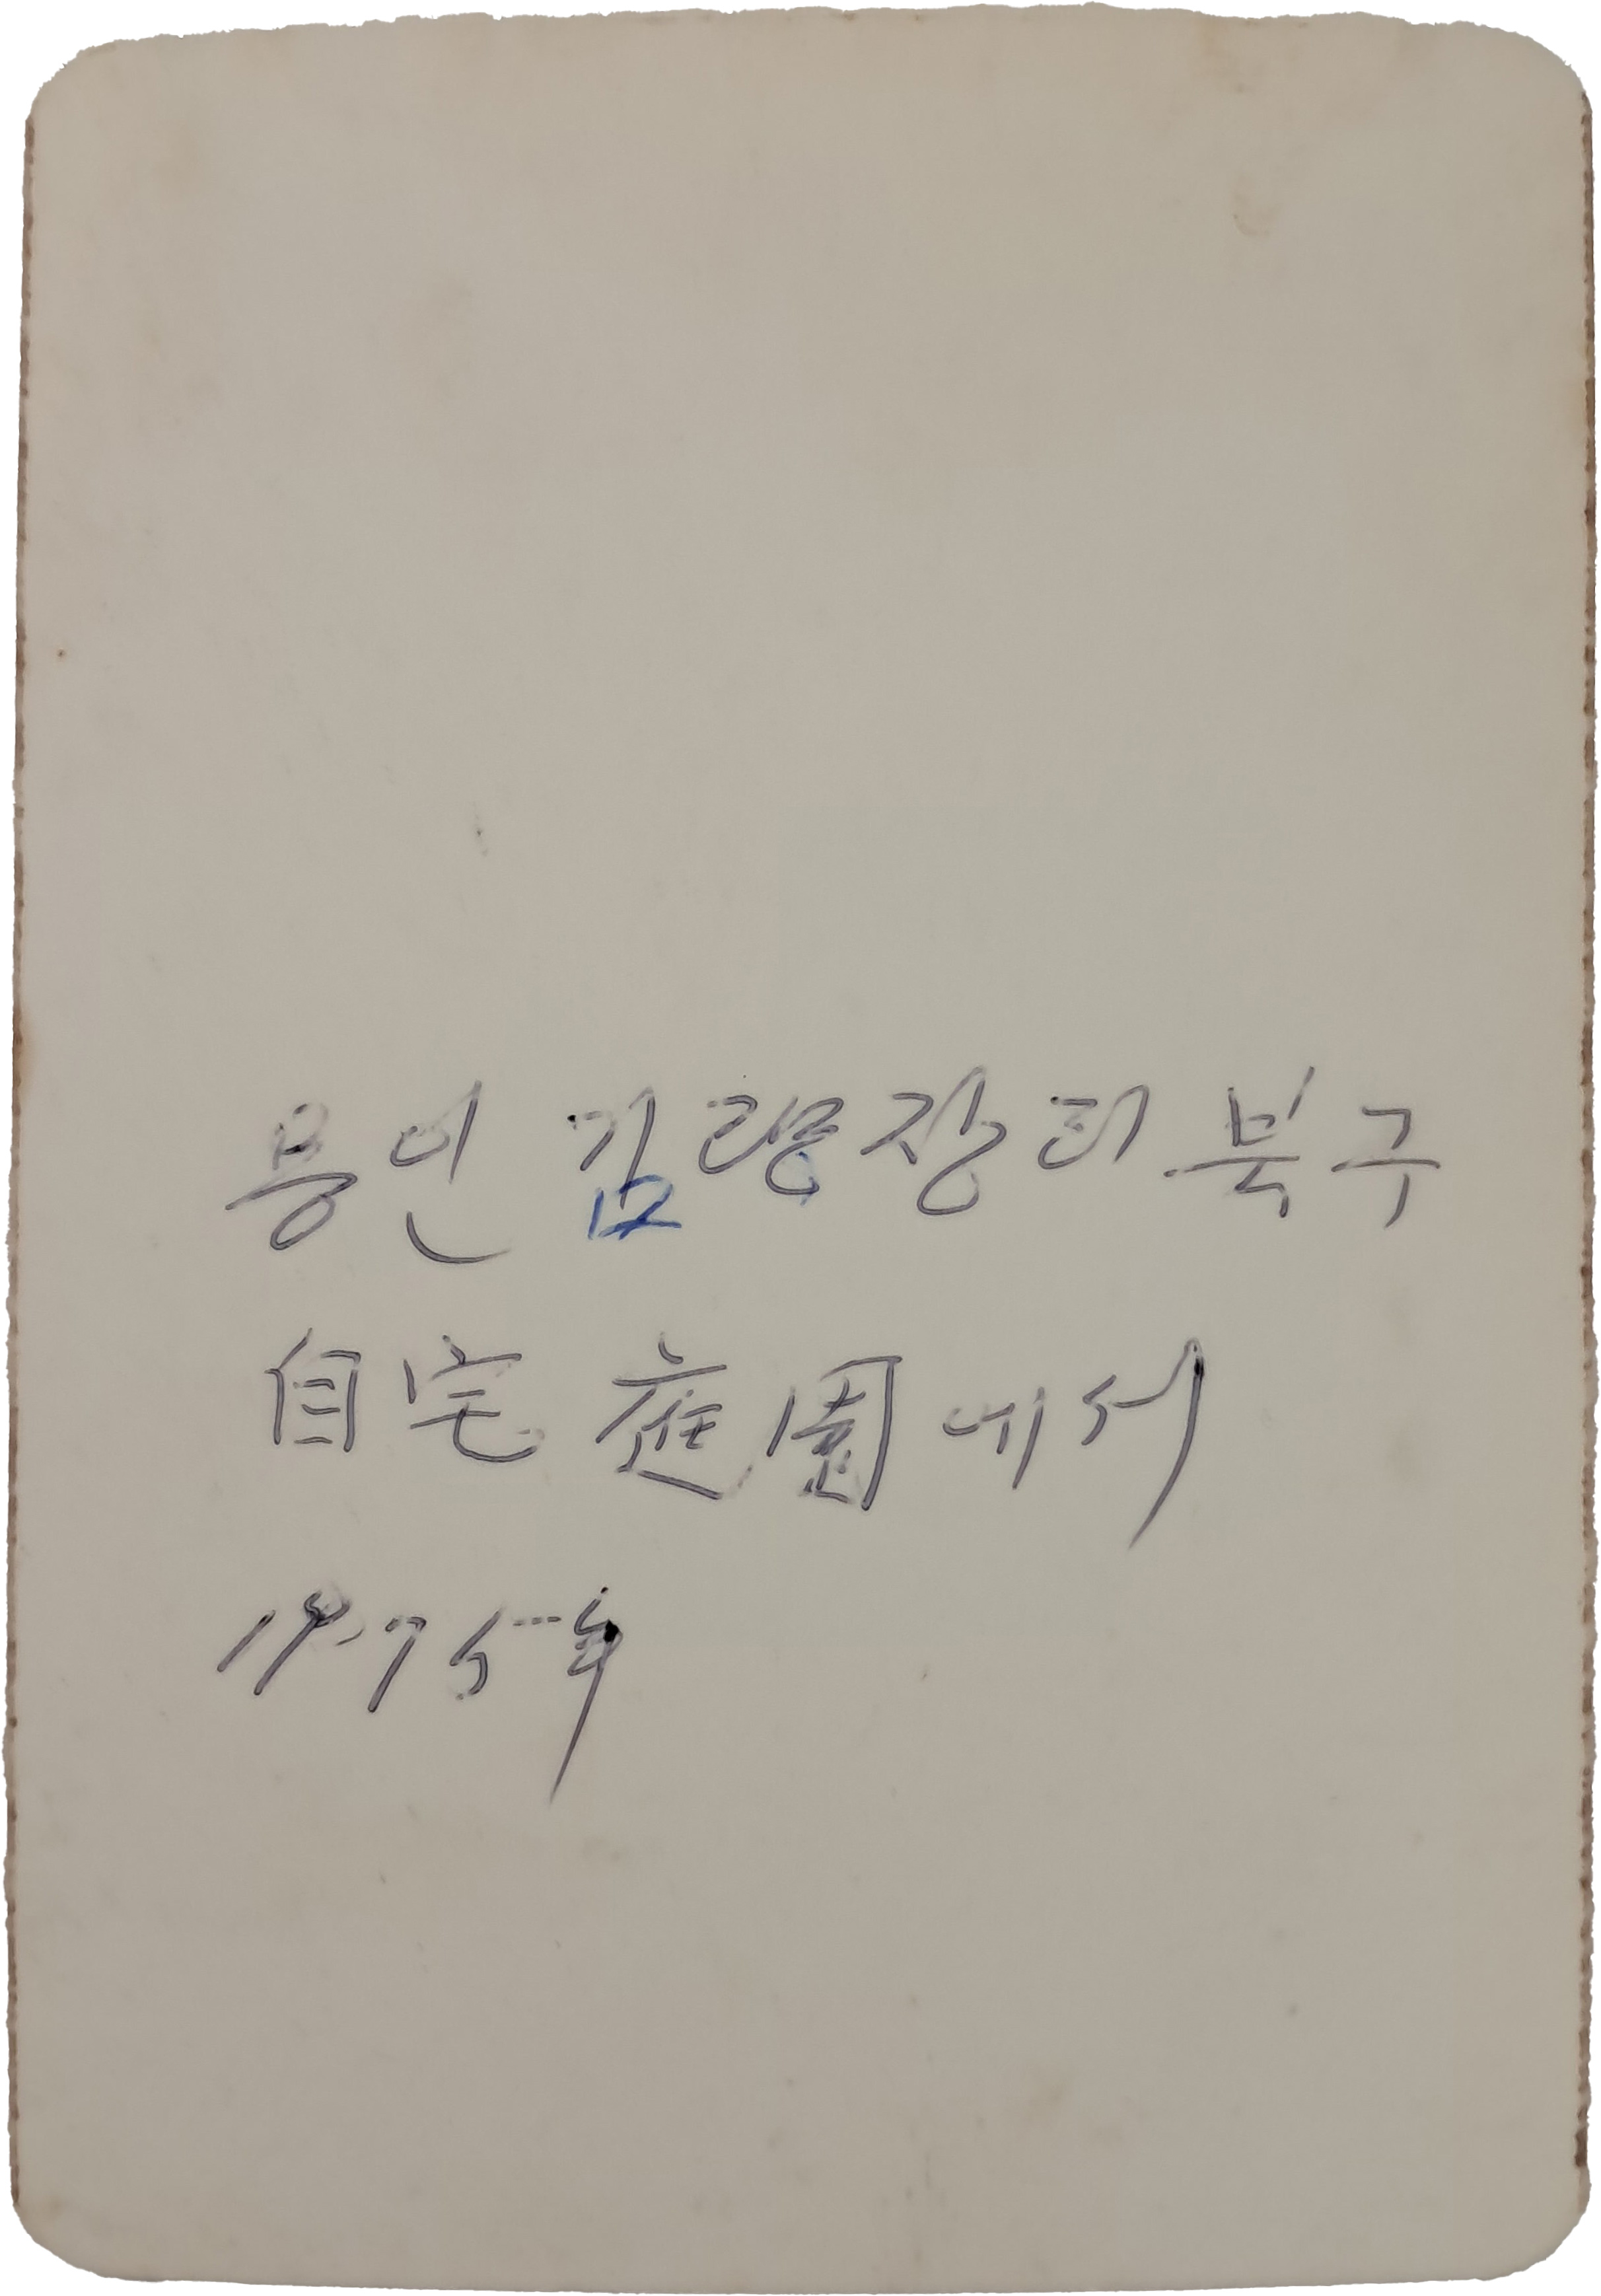 용인 김량장리 북구
自宅 庭園에서
1975年